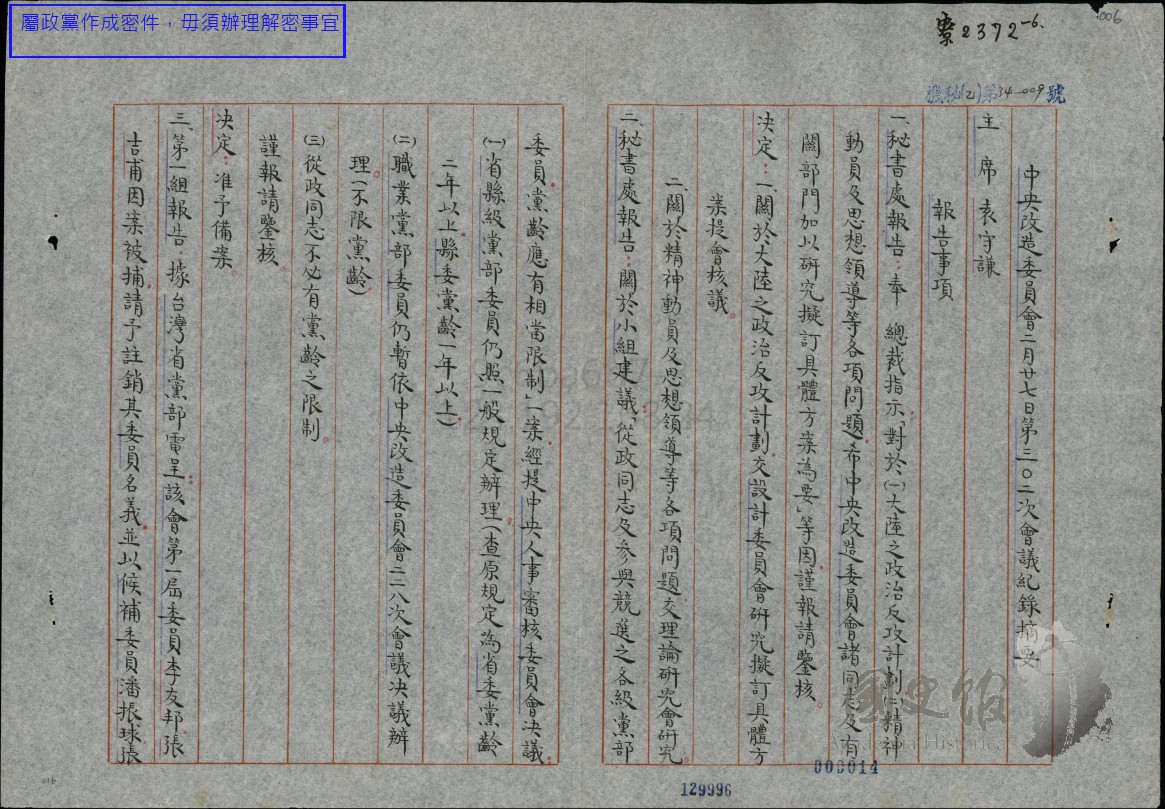 屬政黨作成密件,毋須辦理解密事宜
006
寮2372-6.
機秘(乙)第34-009號
中央改造委員會二月廿七日第三〇二次會議紀錄摘要
主 席 袁守謙
報告事項
一、秘書處報告:奉 總裁指示「對於(一)大陸之政治反攻計劃(二)精神
動員及思想領導等各項問題希中央改造委員會諸同志及有
關部門加以研究擬訂具體方案為要」等因謹報請鑒核。
決定:一、關於大陸之政治反攻計劃交設計委員會研究擬訂具體方
案提會核議。
二、關於精神動員及思想領導等各項問題交理論研究會研究。
二、秘書處報告:關於小組建議、「從政同志及參與競選之各級黨部
委員黨齡應有相當限制」一案經提中央人事審核委員會決議:
(一)省縣級黨部委員仍照一般規定辦理。(查原規定為省委黨齡
二年以上縣委黨齡一年以上)
(二)職業黨部委員仍暫依中央改造委員會二二八次會議決議辦
理。(不限黨齡)
(三)從政同志不必有黨齡之限制。
謹報請鑒核
決定:准予備案。
三、第一組報告:據台灣省黨部電呈:該會第一屆委員李友邦、張
吉甫因案被捕請予註銷其委員名義並以候補委員潘振球張
國史館
Academia Historica
000014
129996
016